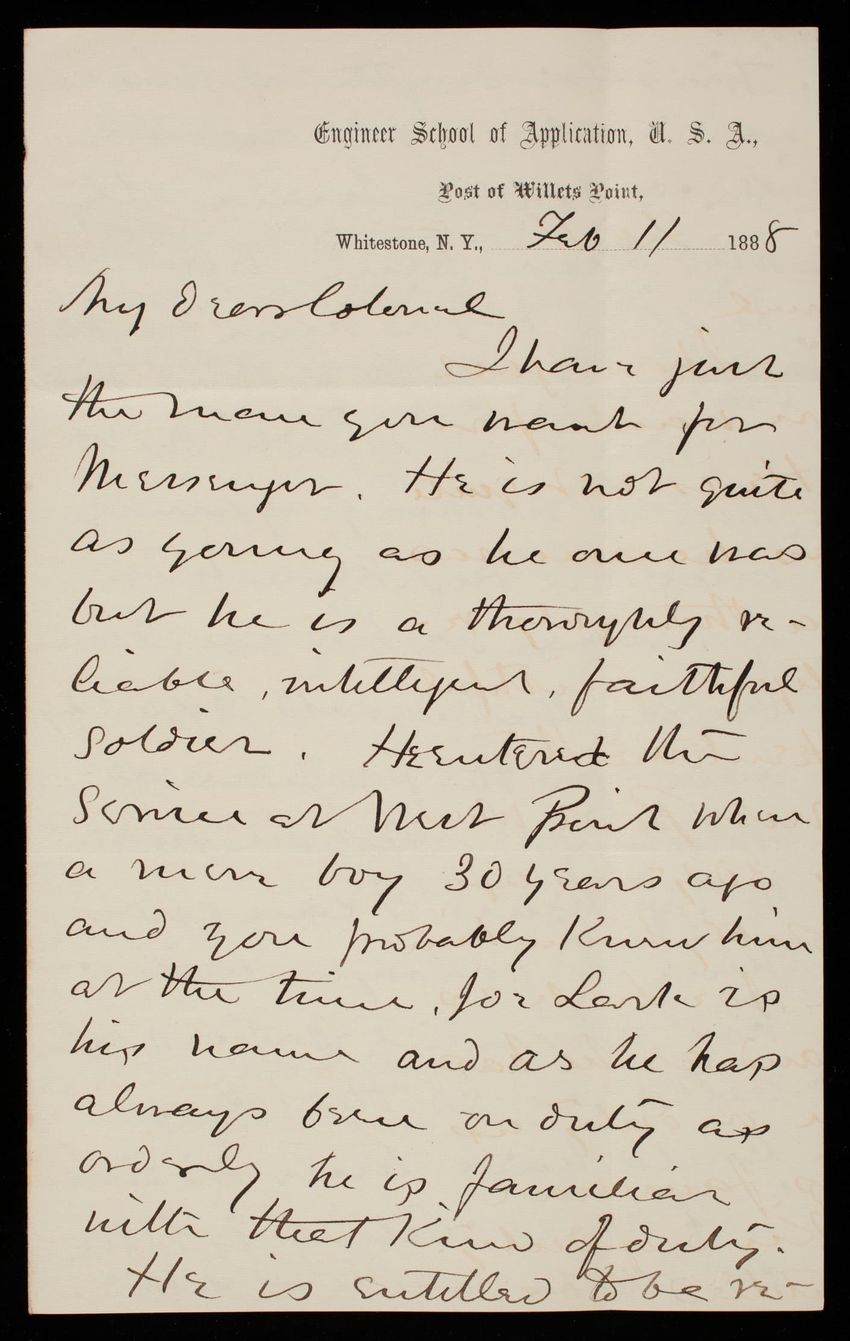 Engineer School of Application, U. S. A.,
Post of Willets Point,
Whitestone, N. Y., Feb 11 1888
My Dear Colonel
I have just
the man you want for
Messenger. He is not quite
as young as he once was
but he is a thoroughly re-
liable, intelligent, faithful
soldier. He entered the
service at West Point when
a mere boy 30 years ago
and you probably knew him
at the time, Joe Lark is
his name and as he has
always been on duty as
orderly he is familiar
with that kind of duty.
He is entitled to be re-